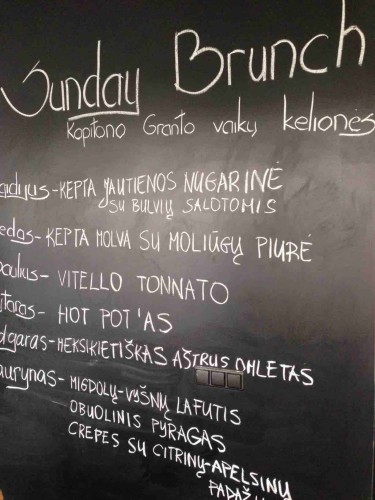 Sunday Brunch
Kapitono Granto vaikų kelionės
KEPTA JAUTIENOS NUGARINĖ
SU BULVIŲ SALOTOMIS
KEPTA MOLVA SU MOLIŪGŲ PIURĖ
VITELLO TONNATO
HOT POT'AS
MEKSIKIETIŠKAS AŠTRUS OMLETAS
MIGDOLŲ-VYŠNIŲ LAFUTIS
OBUOLINIS PYRAGAS
CREPES SU CITRINŲ-APELSINŲ